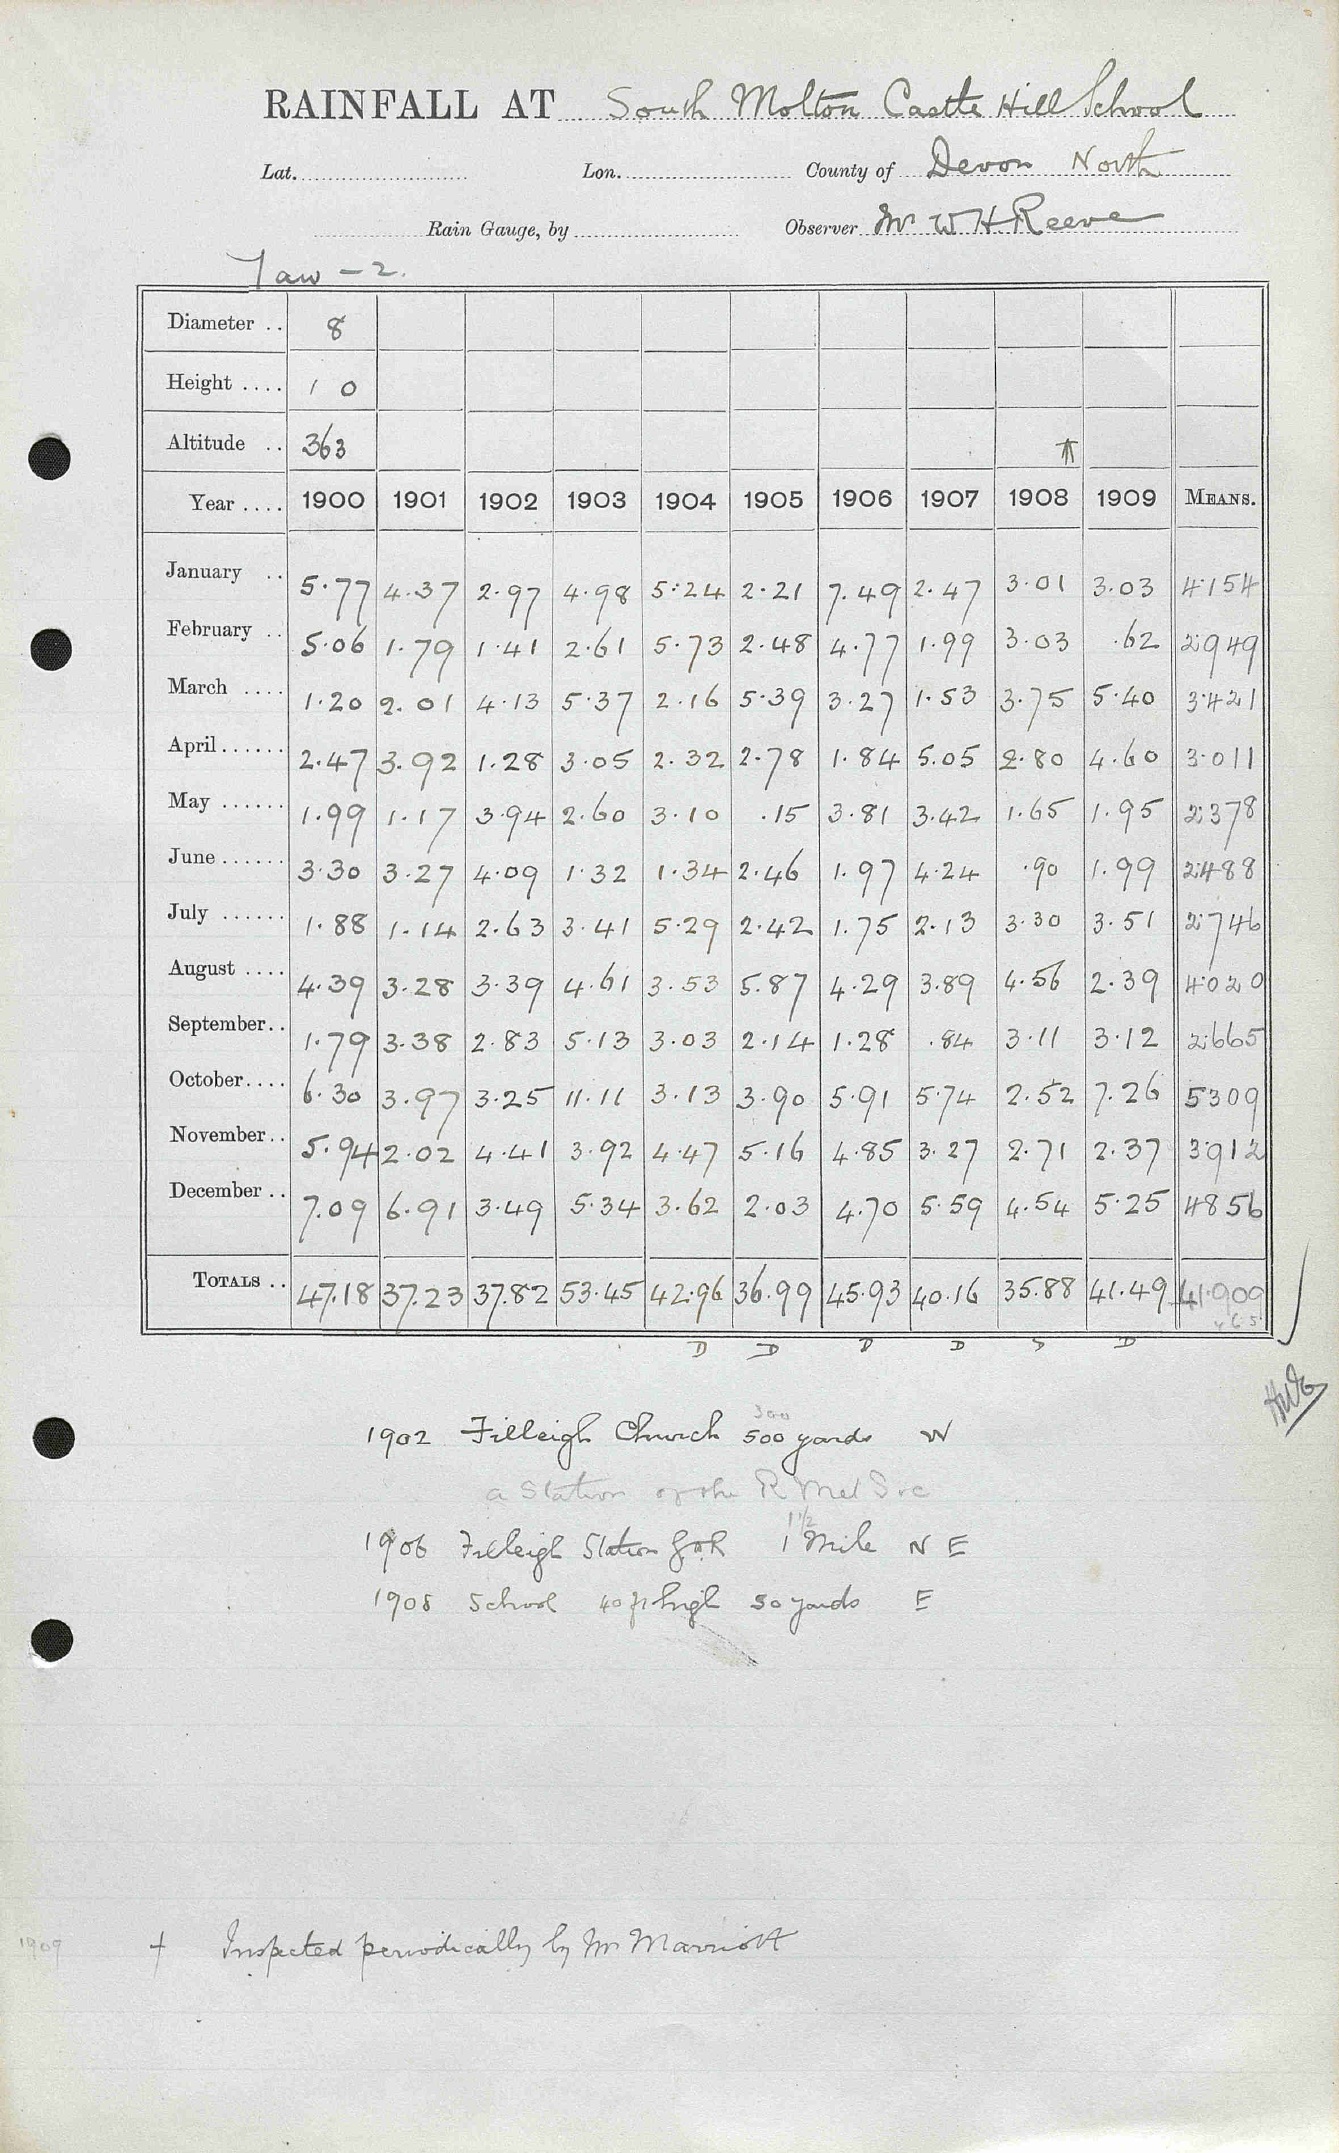 RAINFALL AT South Molton Castle Hill School
Lat. Lon. County of Devon North
Rain Gauge, by Observer Mr W H Reeve
Taw - 2.
Diameter .. 8
Height .... 1 0
Altitude .. 363
Year .... 1900 1901 1902 1903 1904 1905 1906 1907 1908 1909 MEANS.
January .. 5.77 4.37 2.97 4.98 5.24 2.21 7.49 2.47 3.01 3.03 4.154
February .. 5.06 1.79 1.41 2.61 5.73 2.48 4.77 1.99 3.03 .62 2.949
March .... 1.20 2.01 4.13 5.37 2.16 5.39 3.27 1.53 3.75 5.40 3.421
April ...... 2.47 3.92 1.28 3.05 2.32 2.78 1.84 5.05 2.80 4.60 3.011
May ...... 1.99 1.17 3.94 2.60 3.10 .15 3.81 3.42 1.65 1.95 2.378
June ...... 3.30 3.27 4.09 1.32 1.34 2.46 1.97 4.24 .90 1.99 2.488
July ...... 1.88 1.14 2.63 3.41 5.29 2.42 1.75 2.13 3.30 3.51 2.746
August .... 4.39 3.28 3.39 4.61 3.53 5.87 4.29 3.89 4.56 2.39 4.020
September.. 1.79 3.38 2.83 5.13 3.03 2.14 1.28 .84 3.11 3.12 2.665
October.... 6.30 3.97 3.25 11.11 3.13 3.90 5.91 5.74 2.52 7.26 5309
November.. 5.94 2.02 4.41 3.92 4.47 5.16 4.85 3.27 2.71 2.37 3912
December .. 7.09 6.91 3.49 5.34 3.62 2.03 4.70 5.59 4.54 5.25 4856
TOTALS .. 47.18 37.23 37.82 53.45 42.96 36.99 45.93 40.16 35.88 41.49 41.909
D D D D S D
300
1902 Filleigh Church 500 yards W
a Station of the R Met Soc
1 1/2
1906 Filleigh Station 1 Mile N E
1908 School 40 ft high 50 yards E
1909 † Inspected periodically by Mr Marriott